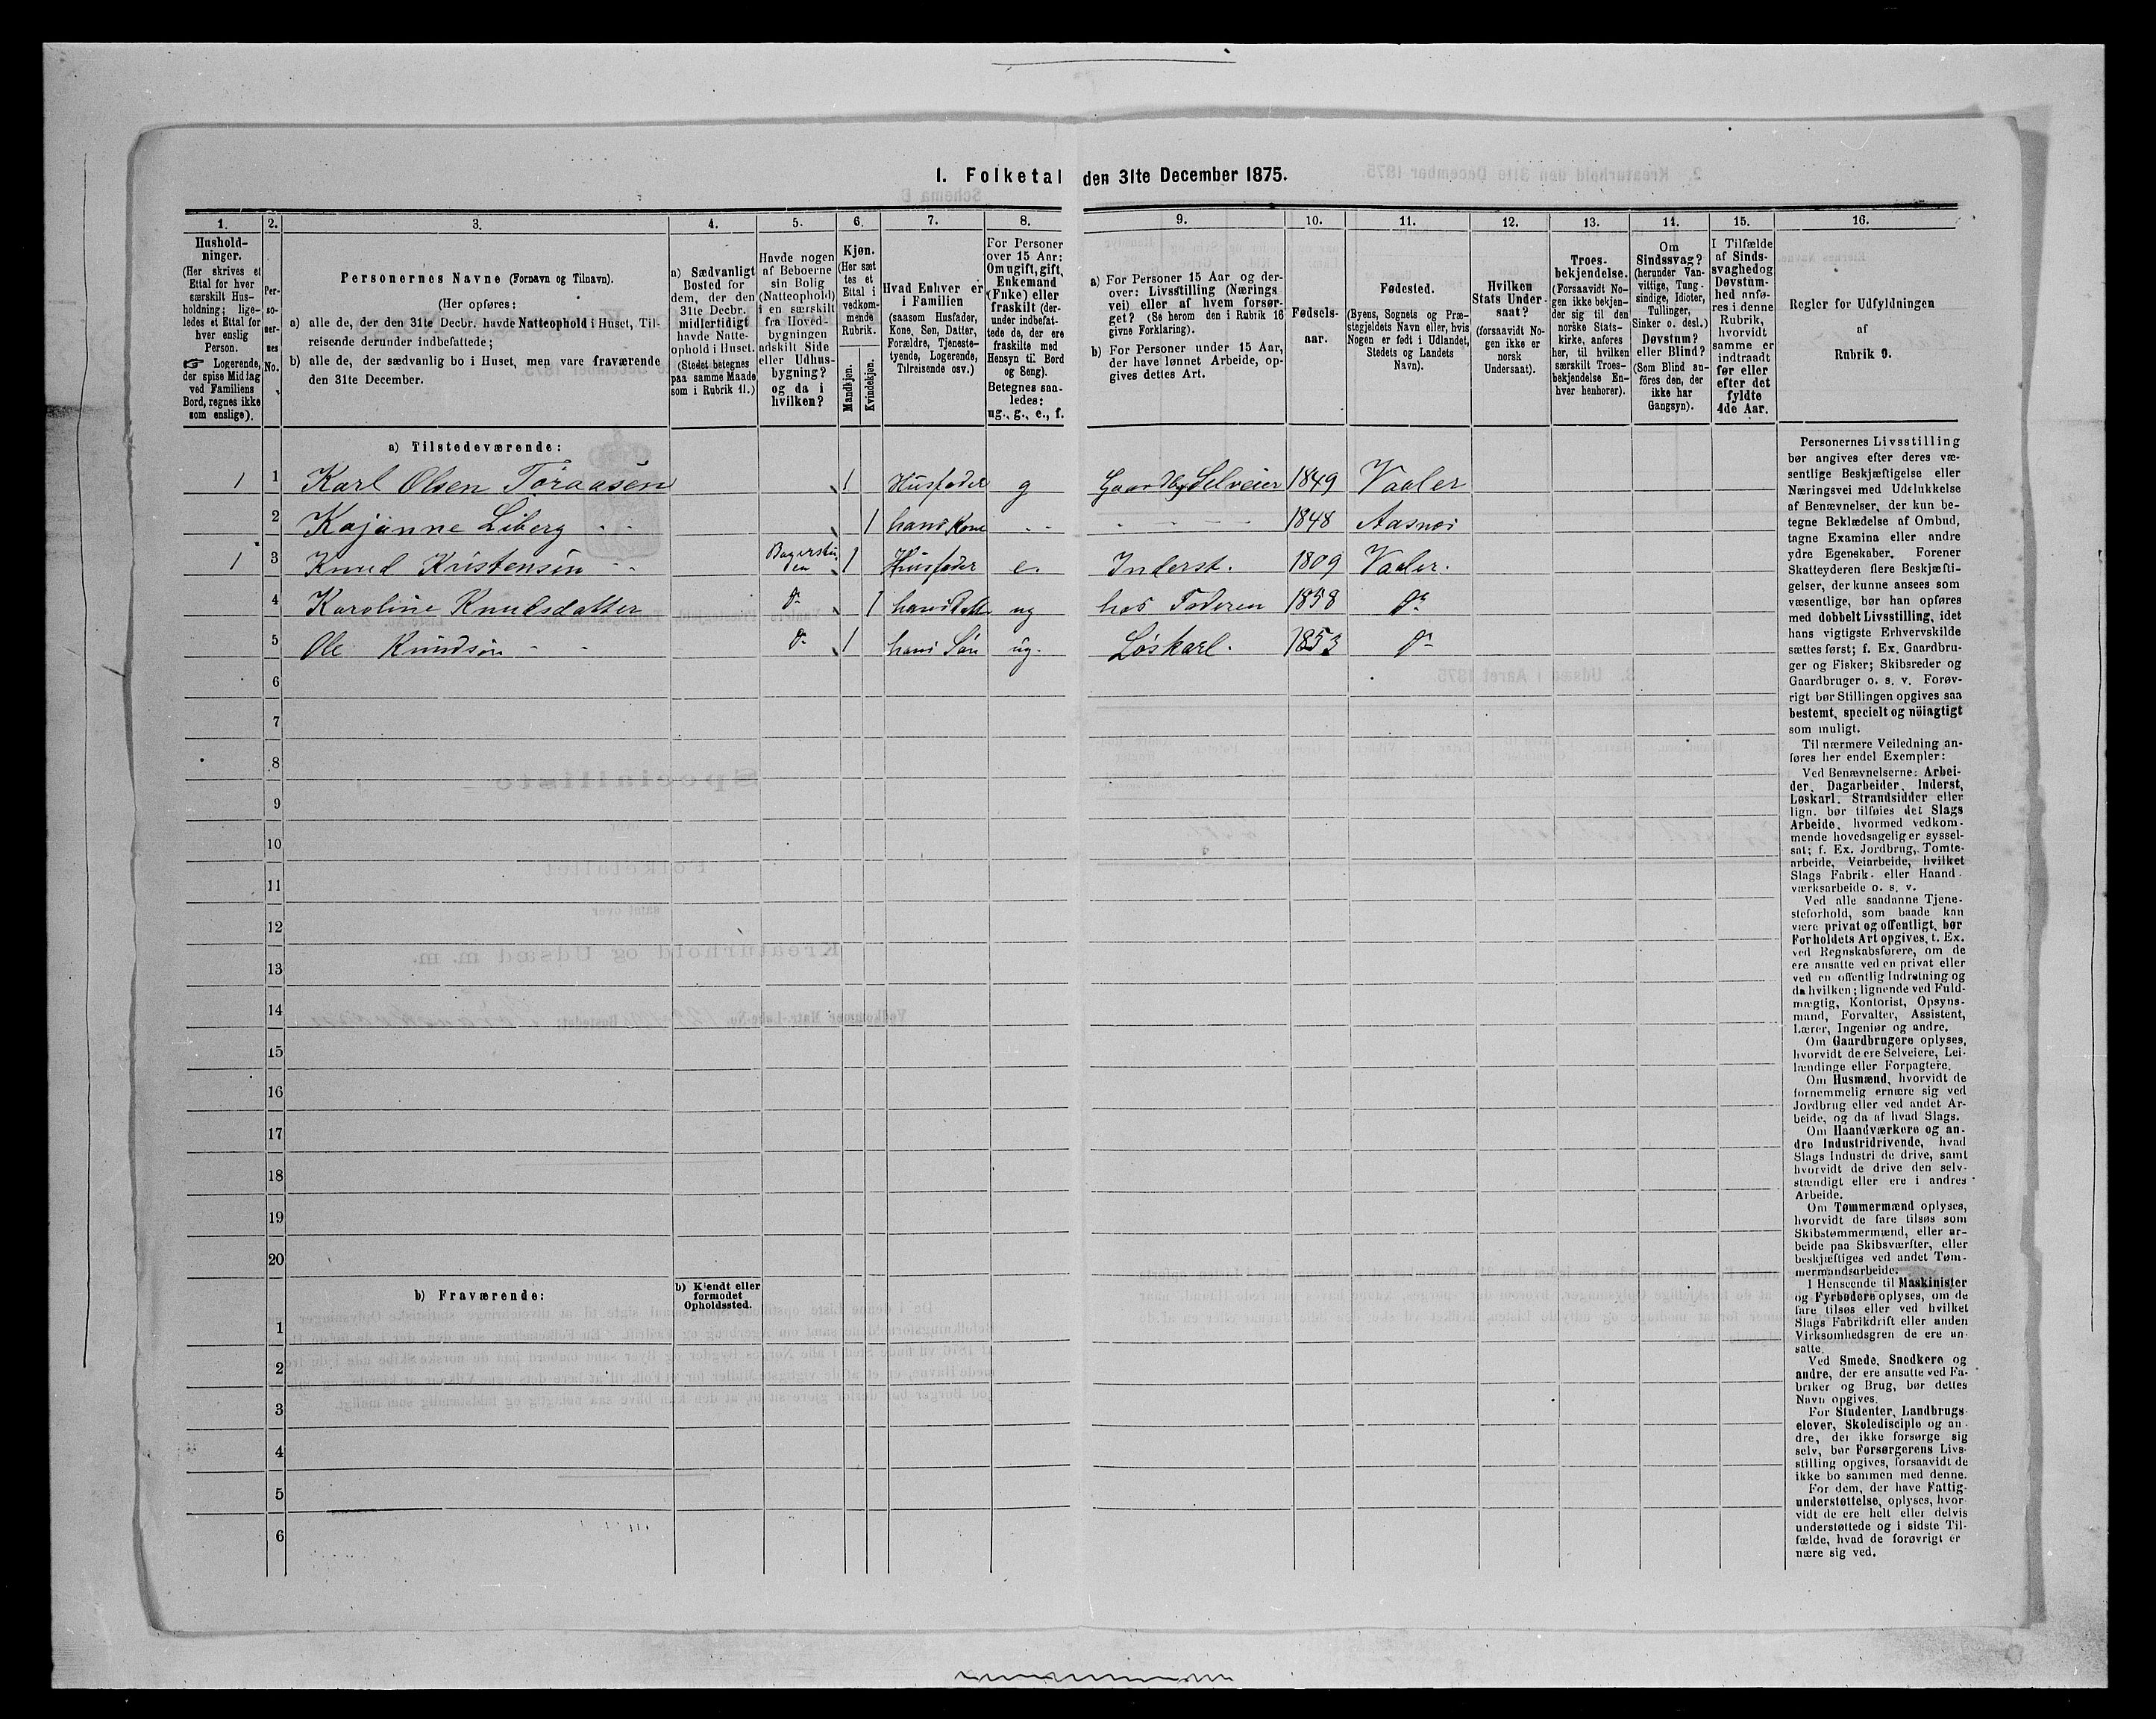 1. Folketal den 31te December 1875.
1.
Hushold-
ninger.
(Her skrives et
Ettal for hver
særskilt Hus-
holdning; lige-
ledes et Ettal for
hver enslig
Person.
☞ Logerende,
der spise Middag
ved Familiens
Bord, regnes ikke
som enslige).
2.
Per-
so-
ner-
nes
No.
3.
Personernes Navne (Fornavn og Tilnavn).
(Her opføres:
a) alle de, der den 31te Decbr. havde Natteophold i Huset, Til-
reisende derunder indbefattede;
b) alle de, der sædvanlig bo i Huset, men vare fraværende
den 31te December.
4.
a) Sædvanligt
Bosted for
dem, der den
31te Decbr.
midlertidigt
havde Natte-
ophold i Huset.
(Stedet betegnes
paa samme Maade
som i Rubrik 11.)
5.
Havde nogen
af Beboerne
sin Bolig
(Natteophold)
i en særskilt
fra Hoved-
bygningen
adskilt Side
eller Udhus-
bygning?
og da i
hvilken?
6.
Kjøn.
(Her sæt
tes et
Ettal i
vedkom-
mende
Rubrik.
Mandkjøn.
Kvindekjøn.
7.
Hvad Enhver er
i Familien
(saasom Husfader,
Kone, Søn, Datter,
Forældre, Tjeneste-
tyende, Logerende,
Tilreisende osv.)
8.
For Personer
over 15 Aar:
Om ugift, gift,
Enkemand
(Enke) eller
fraskilt (der-
under indbefat-
tede de, der ere
fraskilte med
Hensyn til Bord
og Seng).
Betegnes saa-
ledes:
ug., g., e., f.
9.
a) For Personer 15 Aar og der-
over: Livsstilling (Nærings
vei) eller af hvem forsør-
get? (Se herom den i Rubrik 16
givne Forklaring).
b) For Personer under 15 Aar,
der have lønnet Arbeide, op-
gives dettes Art.
10.
Fødsels-
aar.
11.
Fødested.
(Byens, Sognets og Præ-
stegjeldets Navn eller, hvis
Nogen er født i Udlandet,
Stedets og Landets
Navn).
12.
Hvilken
Stats Under-
saat?
(forsaavidt No-
gen ikke er
norsk
Undersaat).
13.
Troes-
bekjendelse.
(Forsaavidt No-
gen ikke bekjen-
der sig til den
norske Stats-
kirke, anføres
her, til hvilken
særskilt Troes-
bekjendelse En-
hver henhører).
14.
Om
Sindssvag?
(herunder Van-
vittige, Tung-
sindige, Idioter,
Tullinger,
Sinker o. desl.)
Døvstum?
eller Blind?
(Som Blind an-
føres den, der
ikke har
Gangsyn).
15.
I Tilfælde
af Sinds-
svaghed og
Døvstum-
hed anfø-
res i denne
Rubrik,
hvorvidt
samme er
indtraadt
før eller
efter det
fyldte
4de Aar.
16.
Regler for Udfyldningen
af
Rubrik 9.
a) Tilstedeværende:
1 1 Karl Olsen Toraasen 1 Husfader g Gaardbr Selveier 1849 Vaaler
2 Kajanne Liberg 1 hans Kone 1848 Aasnes
1 3 Knud Kristensen 1 Husfader e. Inderst. 1809 Vaaler.
4 Karoline Knudsdatter do 1 hans Datt ug hos Faderen 1858 do
5 Ole Knudsen do 1 hans Søn ug. Løskarl. 1853 do
6
7
8
9
10
11
12
13
14
15
16
17
18
19
20
b) Fraværende:
b) Kjendt eller
formodet
Opholdssted.
1
2
3
4
5
6
Personernes Livsstilling
bør angives efter deres væ-
sentlige Beskjæftigelse eller
Næringsvei med Udelukkelse
af Benævnelser, der kun be-
tegne Beklædelse af Ombud,
tagne Examina eller andre
ydre Egenskaber. Forener
Skatteyderen flere Beskjæfti-
gelser, der kunne ansees som
væsentlige, bør han opføres
med dobbelt Livsstilling, idet
hans vigtigste Erhvervskilde
sættes først; f. Ex. Gaardbru-
ger og Fisker; Skibsreder og
Gaardbruger o. s. v. Forøv-
rigt bør Stillingen opgives saa
bestemt, specielt og nøiagtigt
som muligt.
Til nærmere Veiledning an-
føres her endel Exempler:
Ved Benævnelserne: Arbei-
der, Dagarbeider, Inderst,
Løskarl, Strandsidder eller
lign. bør tilføies det Slags
Arbeide, hvormed vedkom-
mende hovedsagelig er syssel-
sat; f. Ex. Jordbrug, Tomte-
arbeide, Veiarbeide, hvilket
Slags Fabrik- eller Haand-
værksarbeide o. s. v.
Ved alle saadanne Tjene-
steforhold, som baade kan
være privat og offentligt, bør
Forholdets Art opgives, t. Ex.
ved Regnskabsførere, om de
ere ansatte ved en privat eller
ved en offentlig Indretning og
da hvilken; lignende ved Fuld-
mægtig, Kontorist, Opsyns-
mand, Forvalter, Assistent,
Lærer, Ingeniør og andre.
Om Gaardbrugere oplyses,
hvorvidt de ere Selveiere, Lei-
lændinge eller Forpagtere.
Om Husmænd, hvorvidt de
fornemmelig ernære sig ved
Jordbrug eller ved andet Ar-
beide, og da af hvad Slags.
Om Haandværkere og an-
dre Industridrivende, hvad
Slags Industri de drive, samt
hvorvidt de drive den selv-
stændigt eller ere i andres
Arbeide.
Om Tømmermænd oplyses,
hvorvidt de fare tilsøs som
Skibstømmermænd, eller ar-
beide paa Skibsværfter, eller
beskjæftiges ved andet Tøm-
mermandsarbeide.
I Henseende til Maskinister
og Fyrbødere oplyses, om de
fare tilsøs eller ved hvilket
Slags Fabrikdrift eller anden
Virksomhedsgren de ere an-
satte.
Ved Smede, Snedkere og
andre, der ere ansatte ved Fa-
briker og Brug, bør dettes
Navn opgives.
For Studenter, Landbrugs-
elever, Skoledisciple og an-
dre, der ikke forsørge sig
selv, bør Forsørgerens Livs-
stilling opgives, forsaavidt de
ikke bo sammen med denne.
For dem, der have Fattig-
understøttelse, oplyses, hvor-
vidt de ere helt eller delvis
understøttede og i sidste Til-
fælde, hvad de forøvrigt er
nære sig ved.